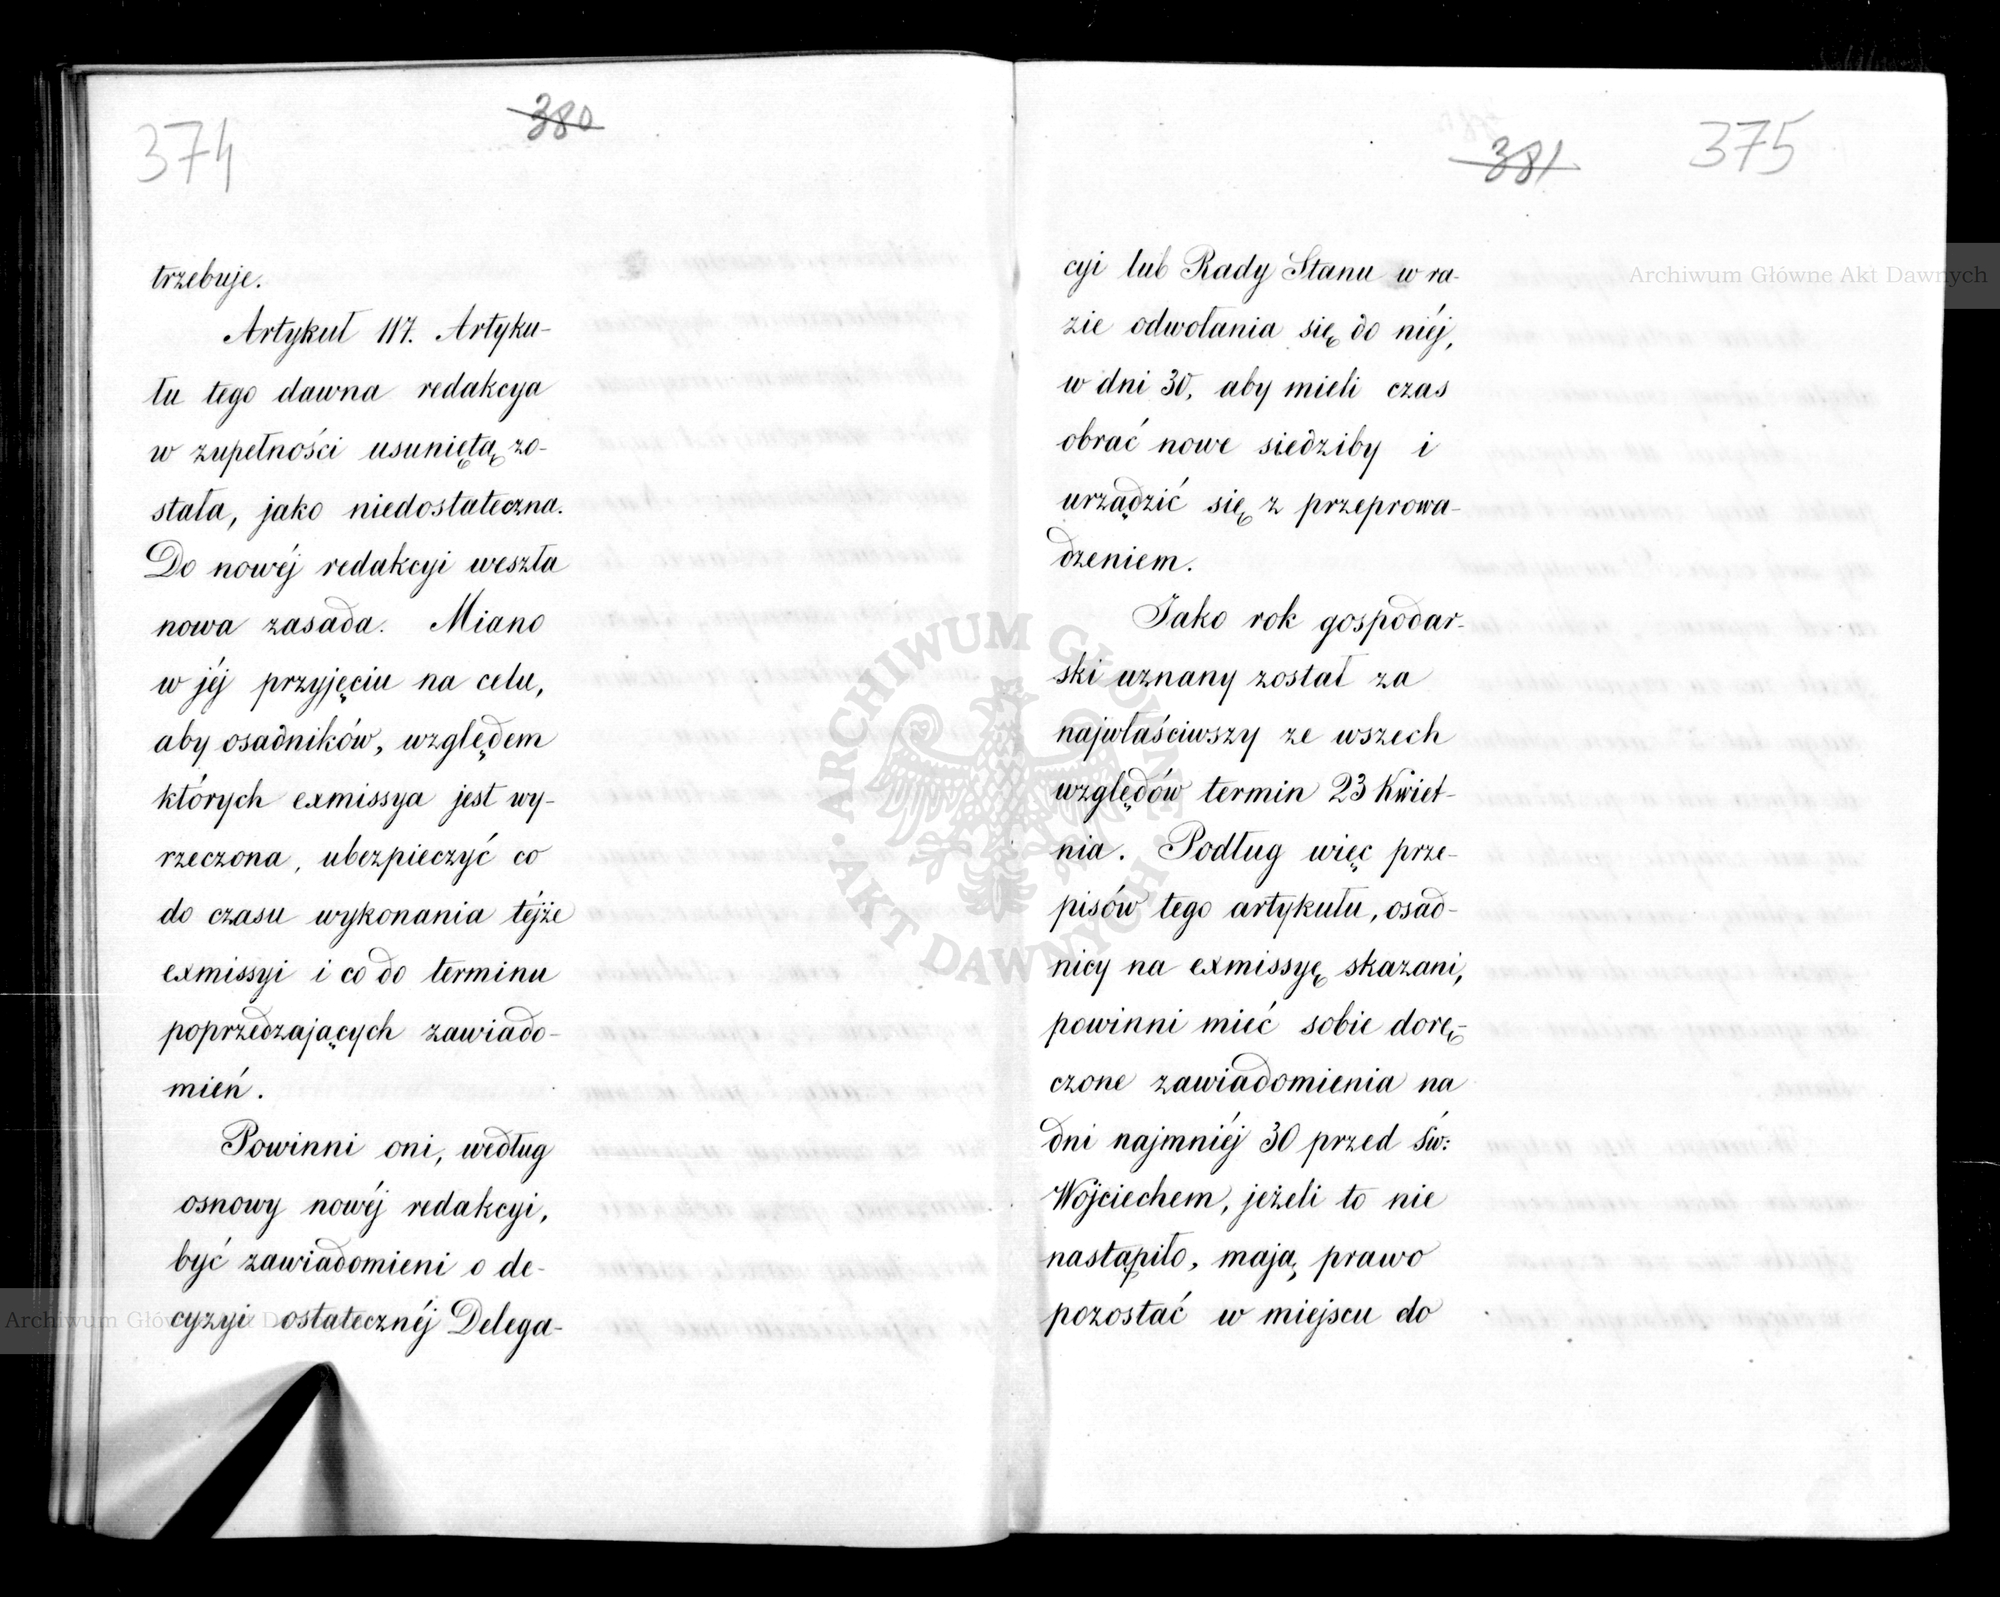 374
380
trzebuje.
Artykuł 117. Artyku-
łu tego dawna redakcya
w zupełności usuniętą zo-
stała, jako niedostateczna.
Do nowéj redakcyi weszła
nowa zasada. Miano
w jéj przyjęciu na celu,
aby osadników, względem
których exmissya jest wy-
rzeczona, ubezpieczyć co
do czasu wykonania téjże
exmissyi i co do terminu
poprzedzających zawiado-
mień.
Powinni oni, według
osnowy nowéj redakcyi,
być zawiadomieni o de-
cyzyi ostatecznéj Delega-
381
375
cyi lub Rady Stanu w ra-
zie odwołania się do niéj,
w dni 30, aby mieli czas
obrać nowe siedziby i
urządzić się z przeprowa-
dzeniem.
Jako rok gospodar-
ski uznany został za
najwłaściwszy ze wszech
względów termin 23 Kwiet-
nia. Podług więc prze-
pisów tego artykułu, osad-
nicy na exmissyę skazani,
powinni mieć sobie dorę-
czone zawiadomienia na
dni najmniéj 30 przed Św:
Wojciechem, jeżeli to nie
nastąpiło, mają prawo
pozostać w miejscu do
Archiwum Główne Akt Dawnych
Archiwum Główne Akt Dawnych
ARCHIWUM GŁÓWNE
AKT DAWNYCH